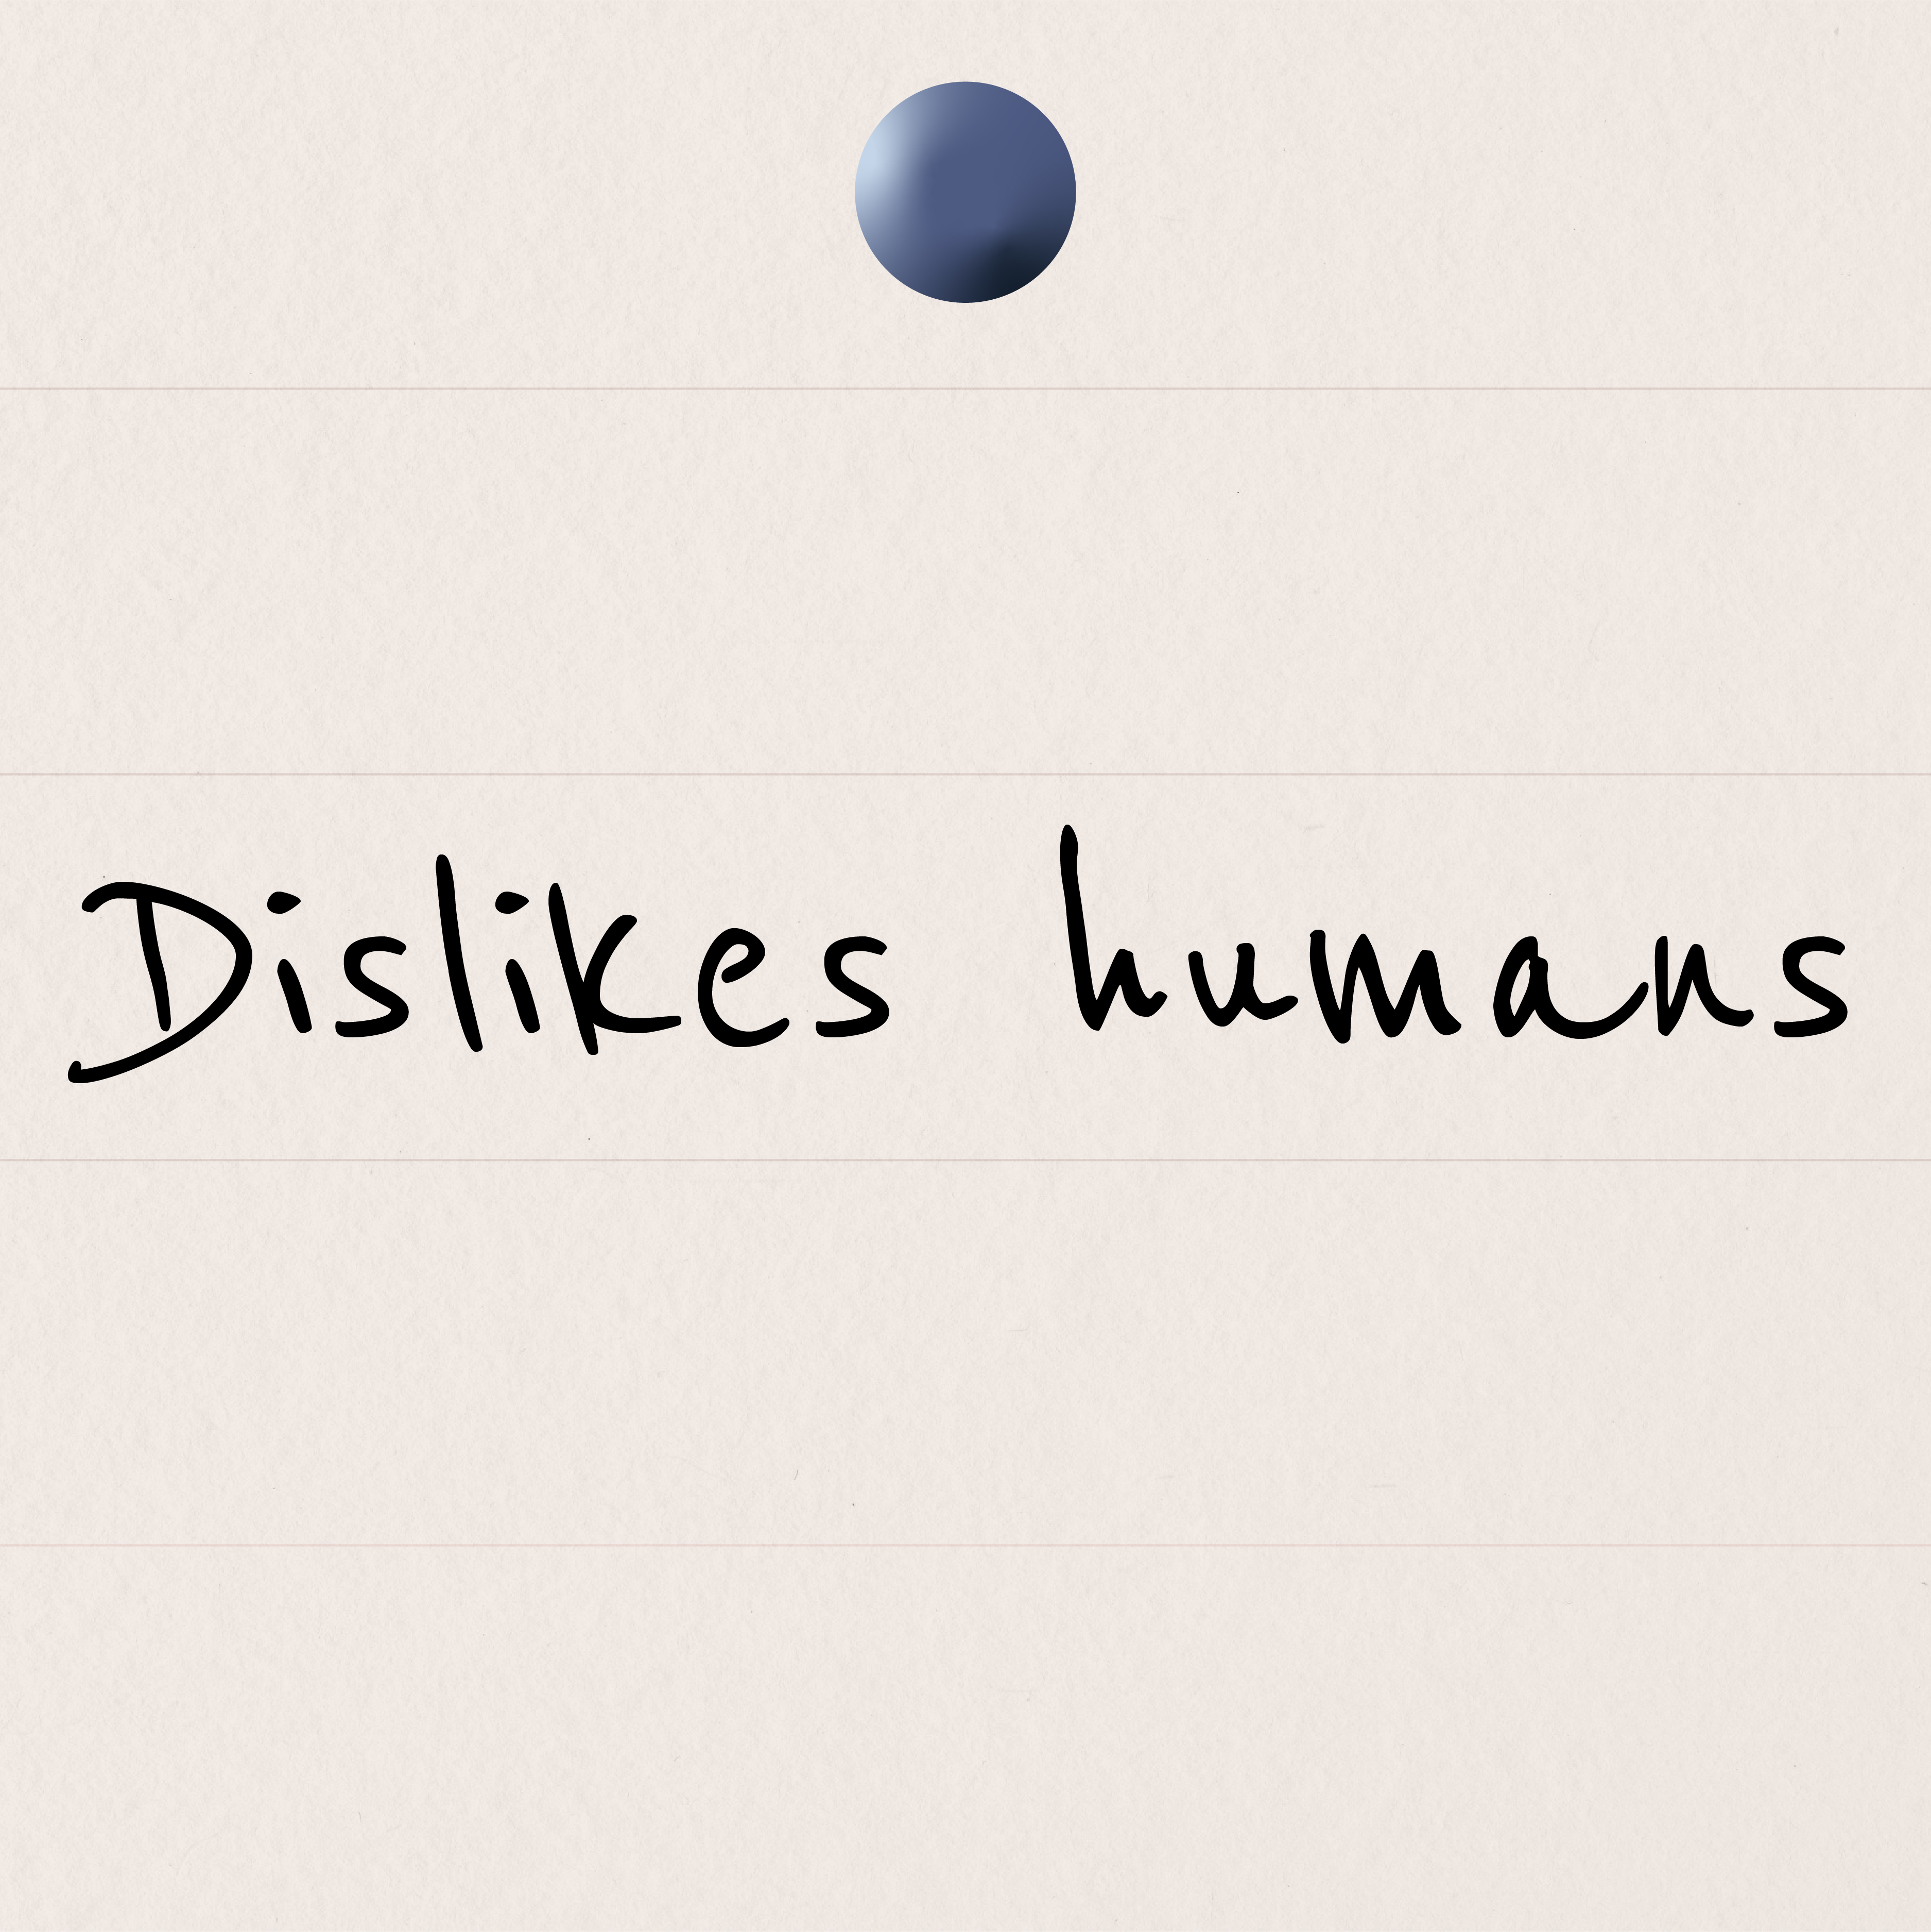 Dislikes humans